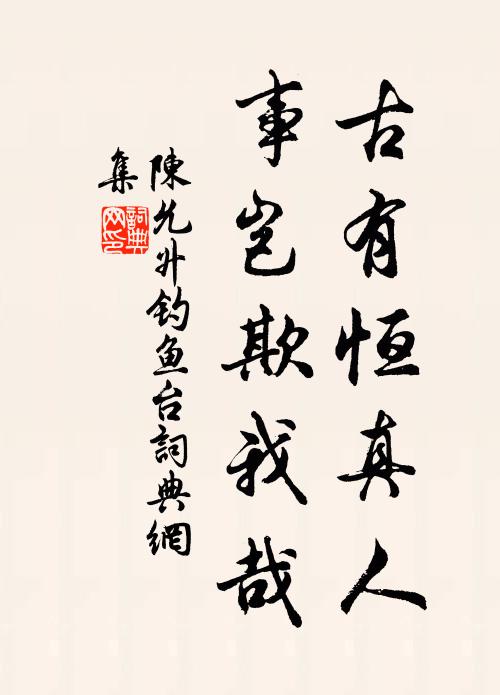 古有恒真人
事岂欺我哉
陳允升钓鱼台詞典網
集
詞典
网印